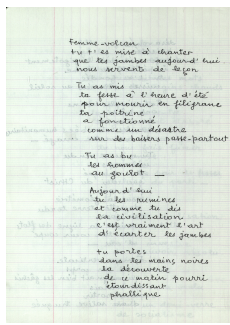 Femme-volcan
tu t'es mise à chanter
que les jambes aujourd'hui
nous servent de leçon
Tu as mis
ta fesse à l'heure d'été
pour mourir en filigrane
ta poitrine
a fonctionné
comme un désastre
sur des baisers passe-partout
Tu as bu
les hommes
au goulot —
Aujourd'hui
tu les rumines
et comme tu dis
la civilisation
c'est vraiment l'art
d'écarter les jambes
tu portes
dans les mains noires
la découverte
de ce matin pourri
étourdissant
phallique